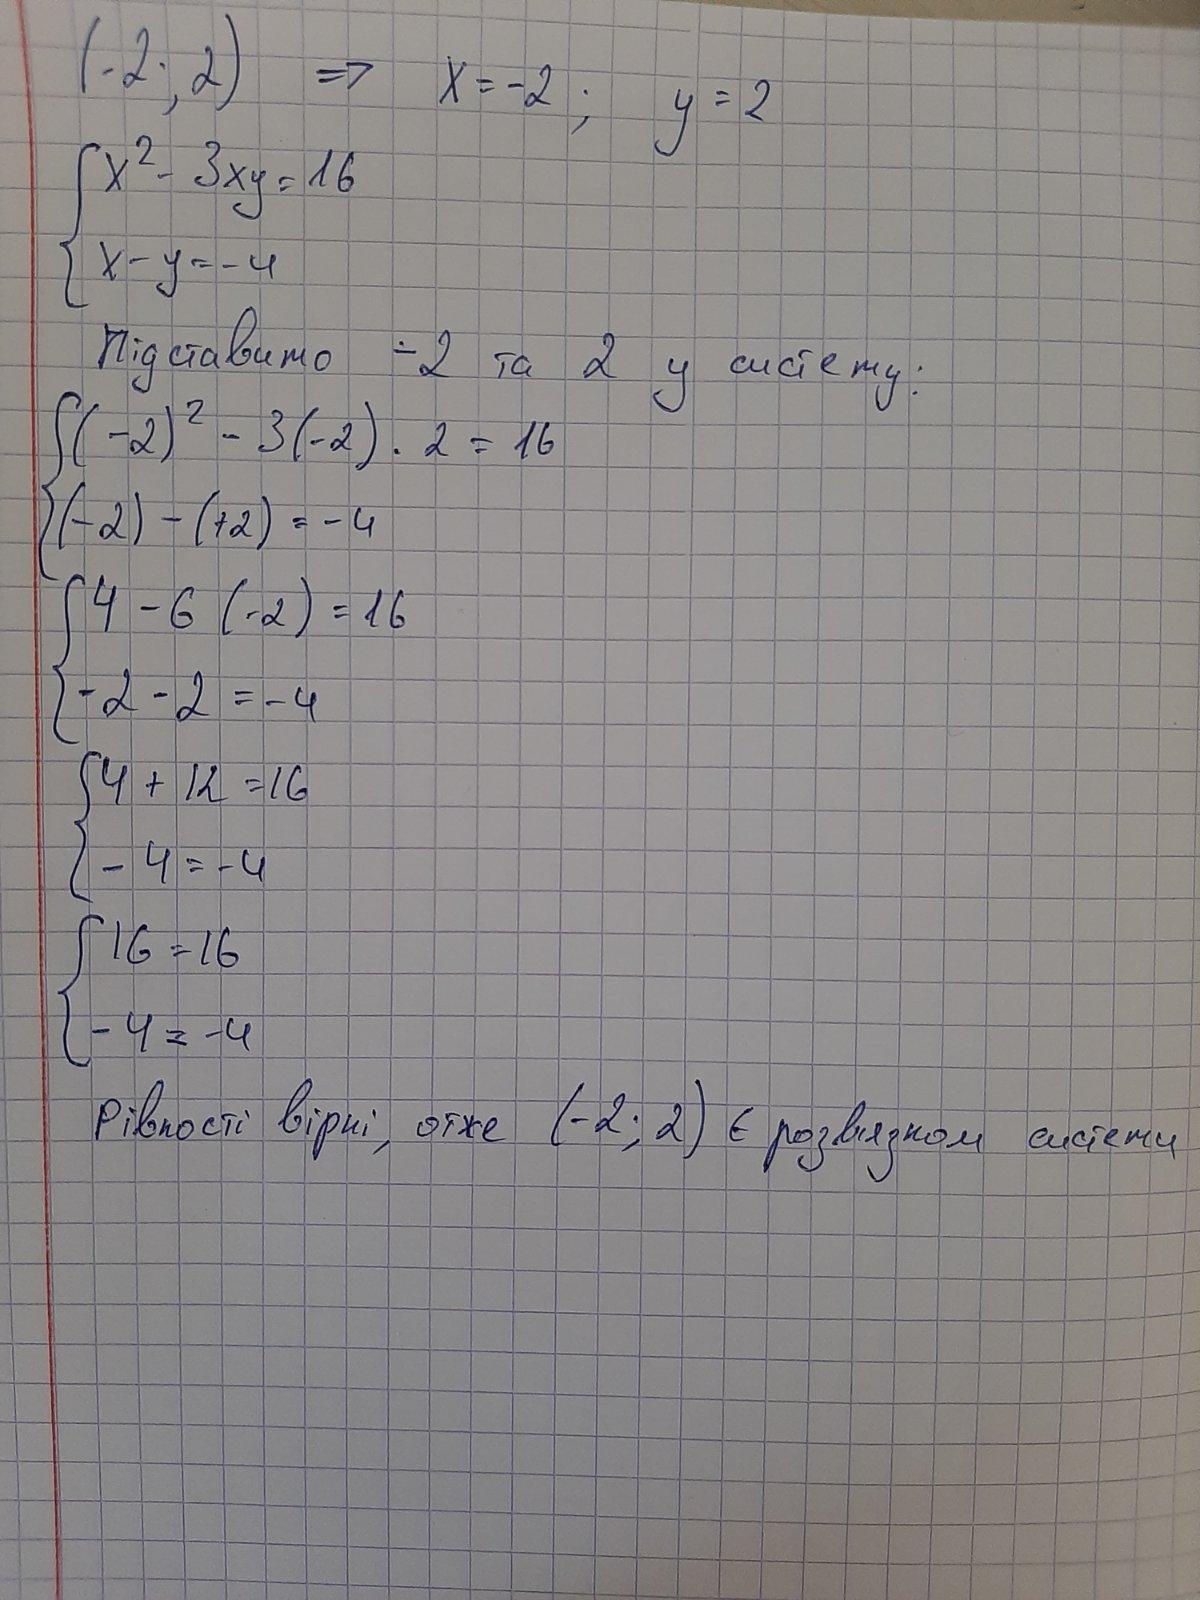 (-2; 2) => x = -2; y = 2
x² - 3xy = 16
x - y = -4
Підставимо -2 та 2 у систему:
(-2)² - 3(-2) · 2 = 16
(-2) - (+2) = -4
4 - 6 (-2) = 16
-2 - 2 = -4
4 + 12 = 16
- 4 = -4
16 = 16
- 4 = -4
Рівності вірні, отже (-2; 2) є розвязком системи